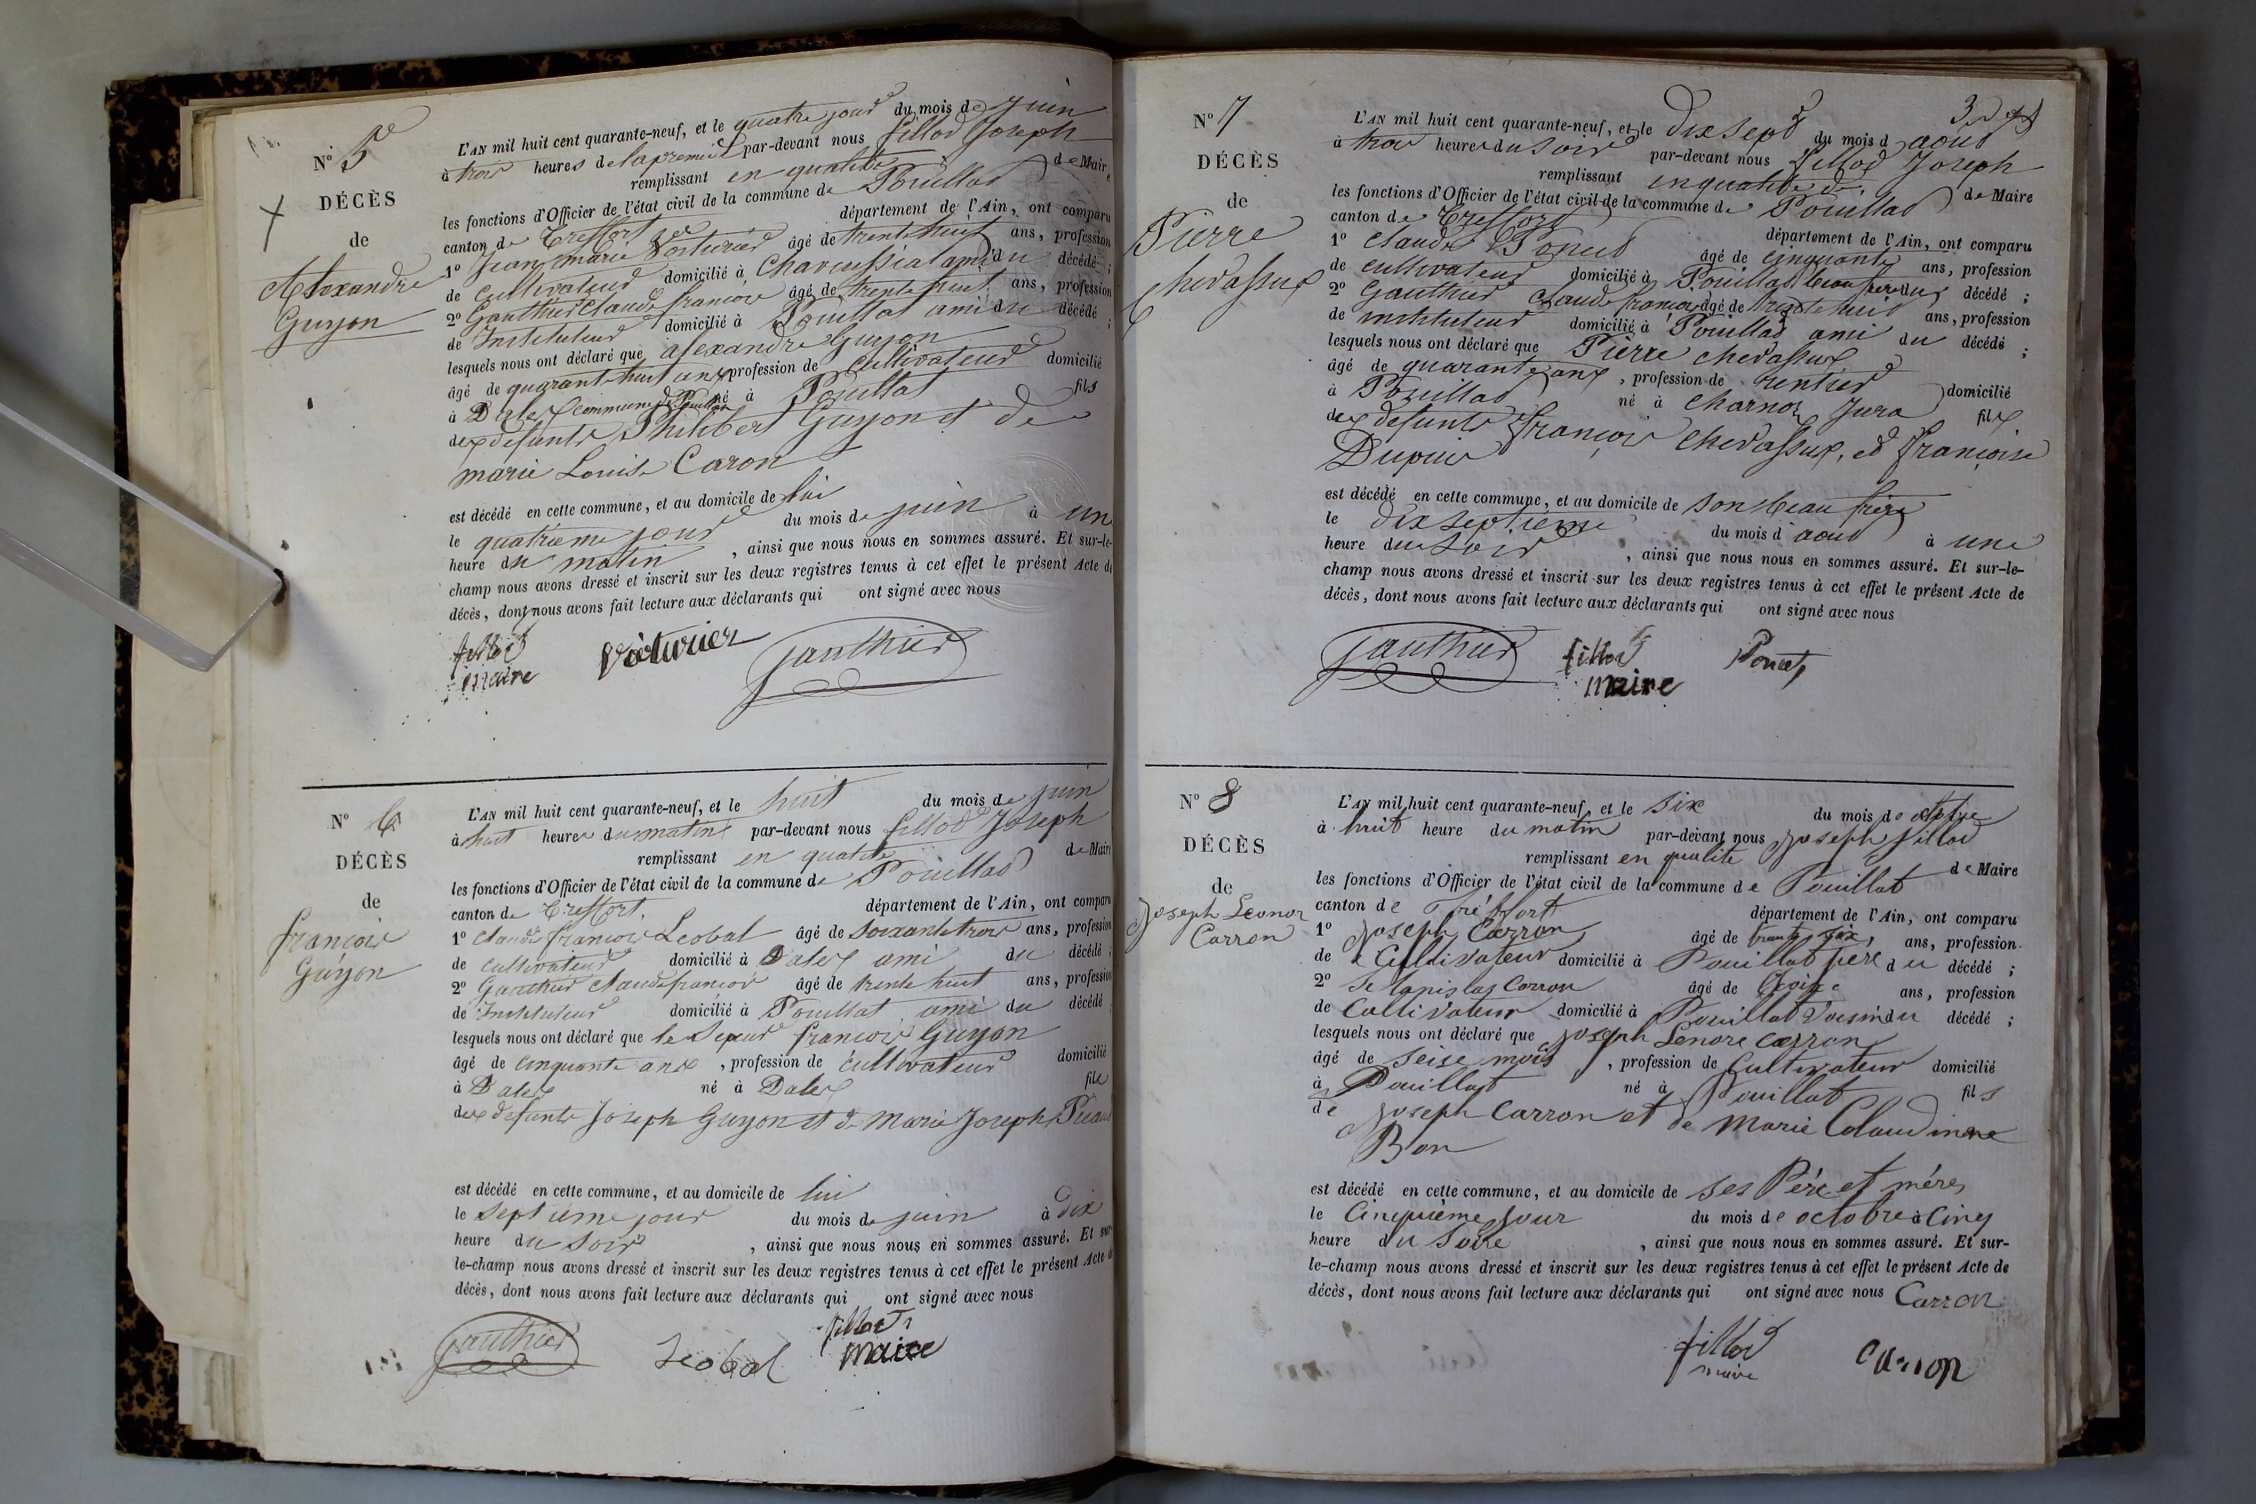 N° 5
DÉCÈS
de
Alexandre
Guyon
L'AN mil huit cent quarante-neuf, et le quatre jour du mois de Juin
à trois heures de la premiere par-devant nous fillod Joseph
remplissant en qualité de Maire
les fonctions d'Officier de l'état civil de la commune de Pouillat
canton de Treffort département de l'Ain, ont comparu
1° Jean marie Voiturier âgé de trente huit ans, profession
de cultivateur domicilié à Charcussiat ami du décédé ;
2° Gauthier Claude françois âgé de trente huit ans, profession
de Instituteur domicilié à Pouillat ami du décédé ;
lesquels nous ont déclaré que alexandre Guyon
âgé de quarante huit ans profession de Cultivateur domicilié
à Dalex commune de Pouillat né à Pouillat fils
des defunts Philibert Guyon et de
marie Louise Caron
est décédé en cette commune, et au domicile de lui
le quatrieme jour du mois de juin à un
heure du matin , ainsi que nous nous en sommes assuré. Et sur-le-
champ nous avons dressé et inscrit sur les deux registres tenus à cet effet le présent Acte de
décès, dont nous avons fait lecture aux déclarants qui ont signé avec nous
fillod Voiturier Gauthier
maire
N° 6
DÉCÈS
de
françois
Guyon
L'AN mil huit cent quarante-neuf, et le huit du mois de juin
à huit heures du matin par-devant nous fillod Joseph
remplissant en qualité de Maire
les fonctions d'Officier de l'état civil de la commune de Pouillat
canton de Treffort département de l'Ain, ont comparu
1° Claude françois Léobal âgé de soixante trois ans, profession
de cultivateur domicilié à Dalex ami du décédé ;
2° Gauthier Claude françois âgé de trente huit ans, profession
de Instituteur domicilié à Pouillat ami du décédé ;
lesquels nous ont déclaré que le Sieur françois Guyon
âgé de cinquante ans , profession de cultivateur domicilié
à Dalex né à Dalex fils
des defunts Joseph Guyon et de Marie Joseph
est décédé en cette commune, et au domicile de lui
le septieme jour du mois de juin à dix
heure du soir , ainsi que nous nous en sommes assuré. Et sur
le-champ nous avons dressé et inscrit sur les deux registres tenus à cet effet le présent Acte de
décès, dont nous avons fait lecture aux déclarants qui ont signé avec nous
Gauthier Léobal fillod
maire
N° 7
DÉCÈS
de
Pierre
Chevassux
L'AN mil huit cent quarante-neuf, et le dix sept du mois d aout
à trois heures du soir par-devant nous fillod Joseph
remplissant en qualité de de Maire
les fonctions d'Officier de l'état civil de la commune de Pouillat
canton de Treffort département de l'Ain, ont comparu
1° Claude Poncet âgé de cinquante ans, profession
de cultivateur domicilié à Pouillat beau frere du décédé ;
2° Gauthier Claude françois âgé de trente huit ans, profession
de instituteur domicilié à Pouillat ami du décédé ;
lesquels nous ont déclaré que Pierre chevassux
âgé de quarante ans , profession de rentier domicilié
à Pouillat né à Charnoz Jura fils
des defunts françois Chevassux, et françoise
Dupuis
est décédé en cette commune, et au domicile de son beau frere
le dix septieme du mois d aout à une
heure du soir , ainsi que nous nous en sommes assuré. Et sur-le-
champ nous avons dressé et inscrit sur les deux registres tenus à cet effet le présent Acte de
décès, dont nous avons fait lecture aux déclarants qui ont signé avec nous
Gauthier fillod Poncet
maire
N° 8
DÉCÈS
de
Joseph Leonor
Carron
L'AN mil huit cent quarante-neuf, et le six du mois de
à huit heure du matin par-devant nous Joseph fillod
remplissant en qualité de Maire
les fonctions d'Officier de l'état civil de la commune de Pouillat
canton de Tréffort département de l'Ain, ont comparu
1° Joseph Carron âgé de trante six, ans, profession
de Cultivateur domicilié à Pouillat père du décédé ;
2° Stanislas Carron âgé de ans, profession
de Cultivateur domicilié à Pouillat voisin du décédé ;
lesquels nous ont déclaré que Joseph Lenore Carron
âgé de seise mois , profession de Cultivateur domicilié
à Pouillat né à Pouillat fils
de Joseph Carron et de Marie Colaudinne
Bon
est décédé en cette commune, et au domicile de ses Père et mére,
le Cinquième jour du mois de octobre à Cinq
heure du Soire , ainsi que nous nous en sommes assuré. Et sur-
le-champ nous avons dressé et inscrit sur les deux registres tenus à cet effet le présent Acte de
décès, dont nous avons fait lecture aux déclarants qui ont signé avec nous Carron
fillod carron
maire